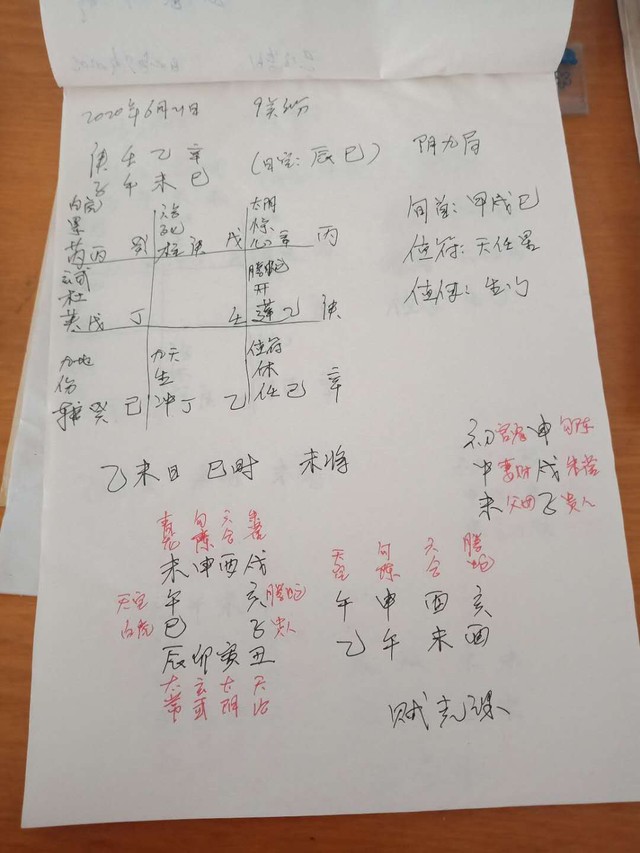 2020年6月21日 9关份
庚 午 乙 辛
子 午 未 巳
(日空: 辰巳) 阴九局
旬首: 甲戌己
值符: 天任星
值使: 生门
白虎
景
芮 丙 癸
六合
死
柱 庚 戊
太阴
惊
心 辛 丙
玄武
杜
英 戊 丁
壬
腾蛇
开
蓬 乙 庚
九地
伤
辅 癸 己
九天
生
冲 丁 乙
值符
休
任 己 辛
乙未日 巳时 未将
初 官鬼 申 勾陈
中 妻财 戌 朱雀
末 父母 子 贵人
青龙 勾陈 六合 朱雀
未 申 酉 戌
天空 午 亥 腾蛇
白虎 巳 子 贵人
辰 卯 寅 丑
太常 玄武 太阴 天后
天空 勾陈 六合 腾蛇
午 申 酉 亥
乙 午 未 酉
贼克课